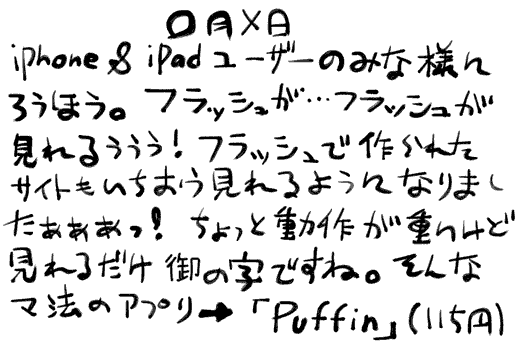 〇月×日
iphone & iPadユーザーのみな様に
ろうほう。フラッシュが…フラッシュが
見れるううう!フラッシュで作られた
サイトもいちおう見れるようになりまし
たぁぁぁっ!ちょっと動作が重いけど
見れるだけ御の字ですね。そんな
マ法のアプリ→「Puffin」(115円)